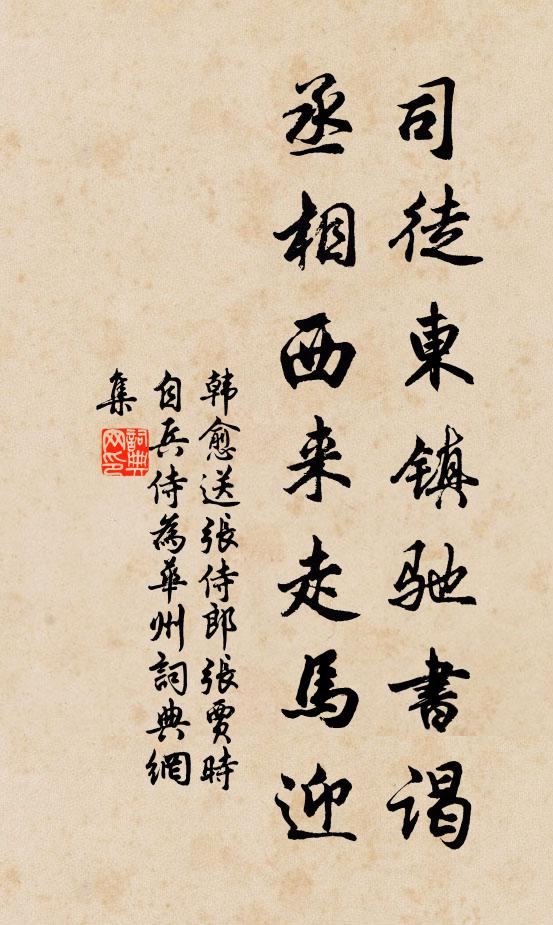 司徒東镇馳書谒
丞相西来走馬迎
韩愈送張侍郎張賈時
自兵侍為華州詞典網
集
詞典網印